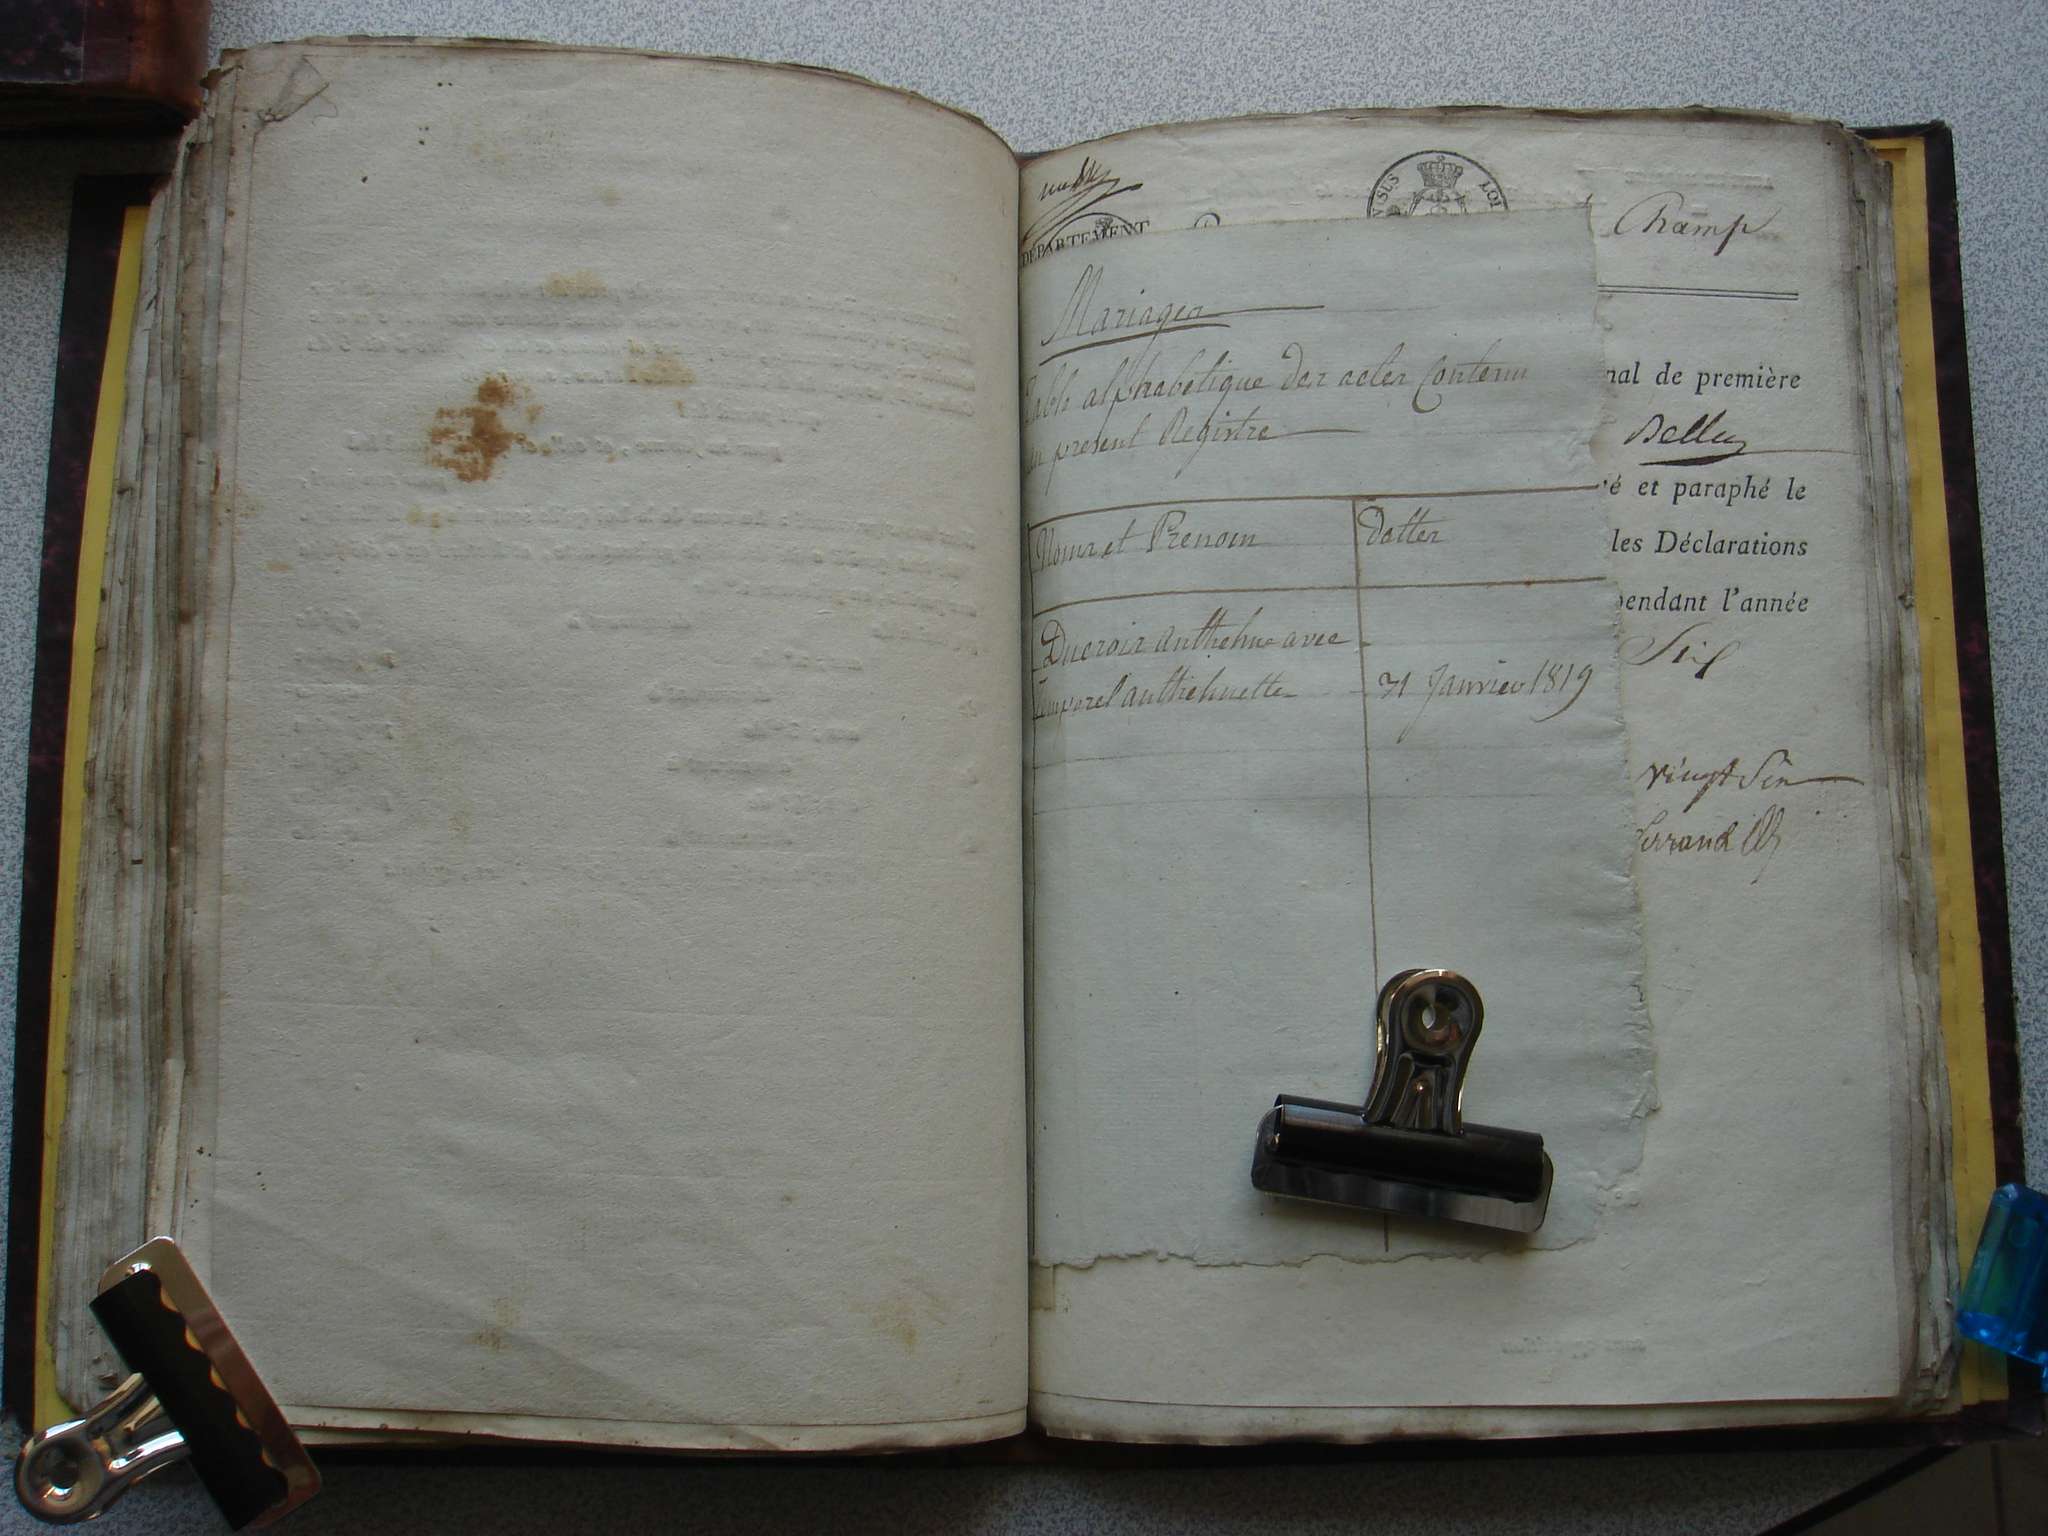 DÉPARTEMENT
LOI
Champ
Mariages
Table alphabétique des actes Contenu
au present Registre
nal de première
Belley
é et paraphé le
Noms et Prenom
dattes
les Déclarations
pendant l'année
Ducroix anthelme avec
Temporel anthelmette 31 Janvier 1819
vingt Six